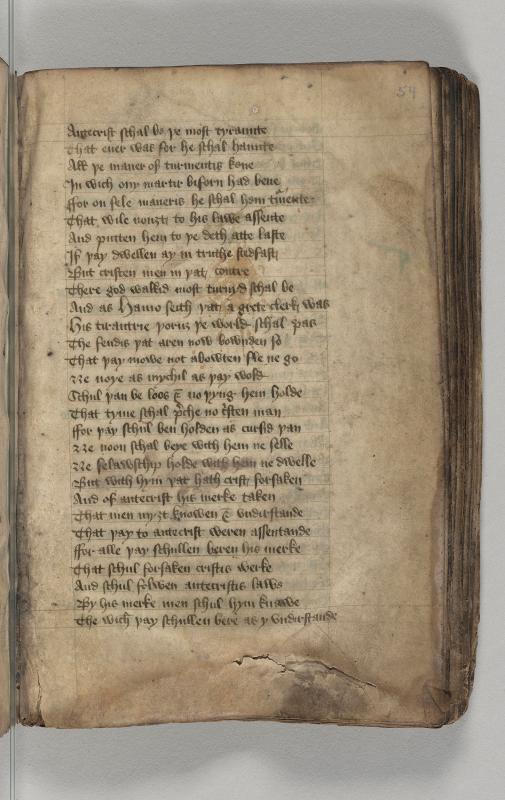 54
Antecrist schal be þe most tyraunte
That euer was for he schal haunte
All þe maner of turmentis kene
In wich ony martir biforn had bene
ffor on fele maneris he schal hem
That wile nouȝt to his lawe assente
And putten hem to þe deth atte laste
If þay dwellen ay in truthe stedfast
But cristen men in þat contre
There god walkid most turnyd schal be
And as Haimo seith þat a grete clerk was
His tirantrie þorus þe world schal pas
The fendis þat aren now bownden so
That þay mowe not abowten fle ne go
Ne noye as mychil as þay wold
Schul þan be loos & no þyng hem holde
That tyme schal p̄che no c̄sten man
ffor þay schul ben holden as cursid þan
Ne noon schal beye with hem ne selle
Ne felawschip holde with hem ne dwelle
But with hym þat hath crist forsaken
And of antecrist his merke taken
That men myȝt knowen & vndirstande
That þay to antecrist weren assentande
ffor alle þay schullen beren his merke
That schul forsaken cristis werke
And schul folwen antecristis lawe
By his merke men schul hym knawe
The wich þay schullen bere as y vndirstande